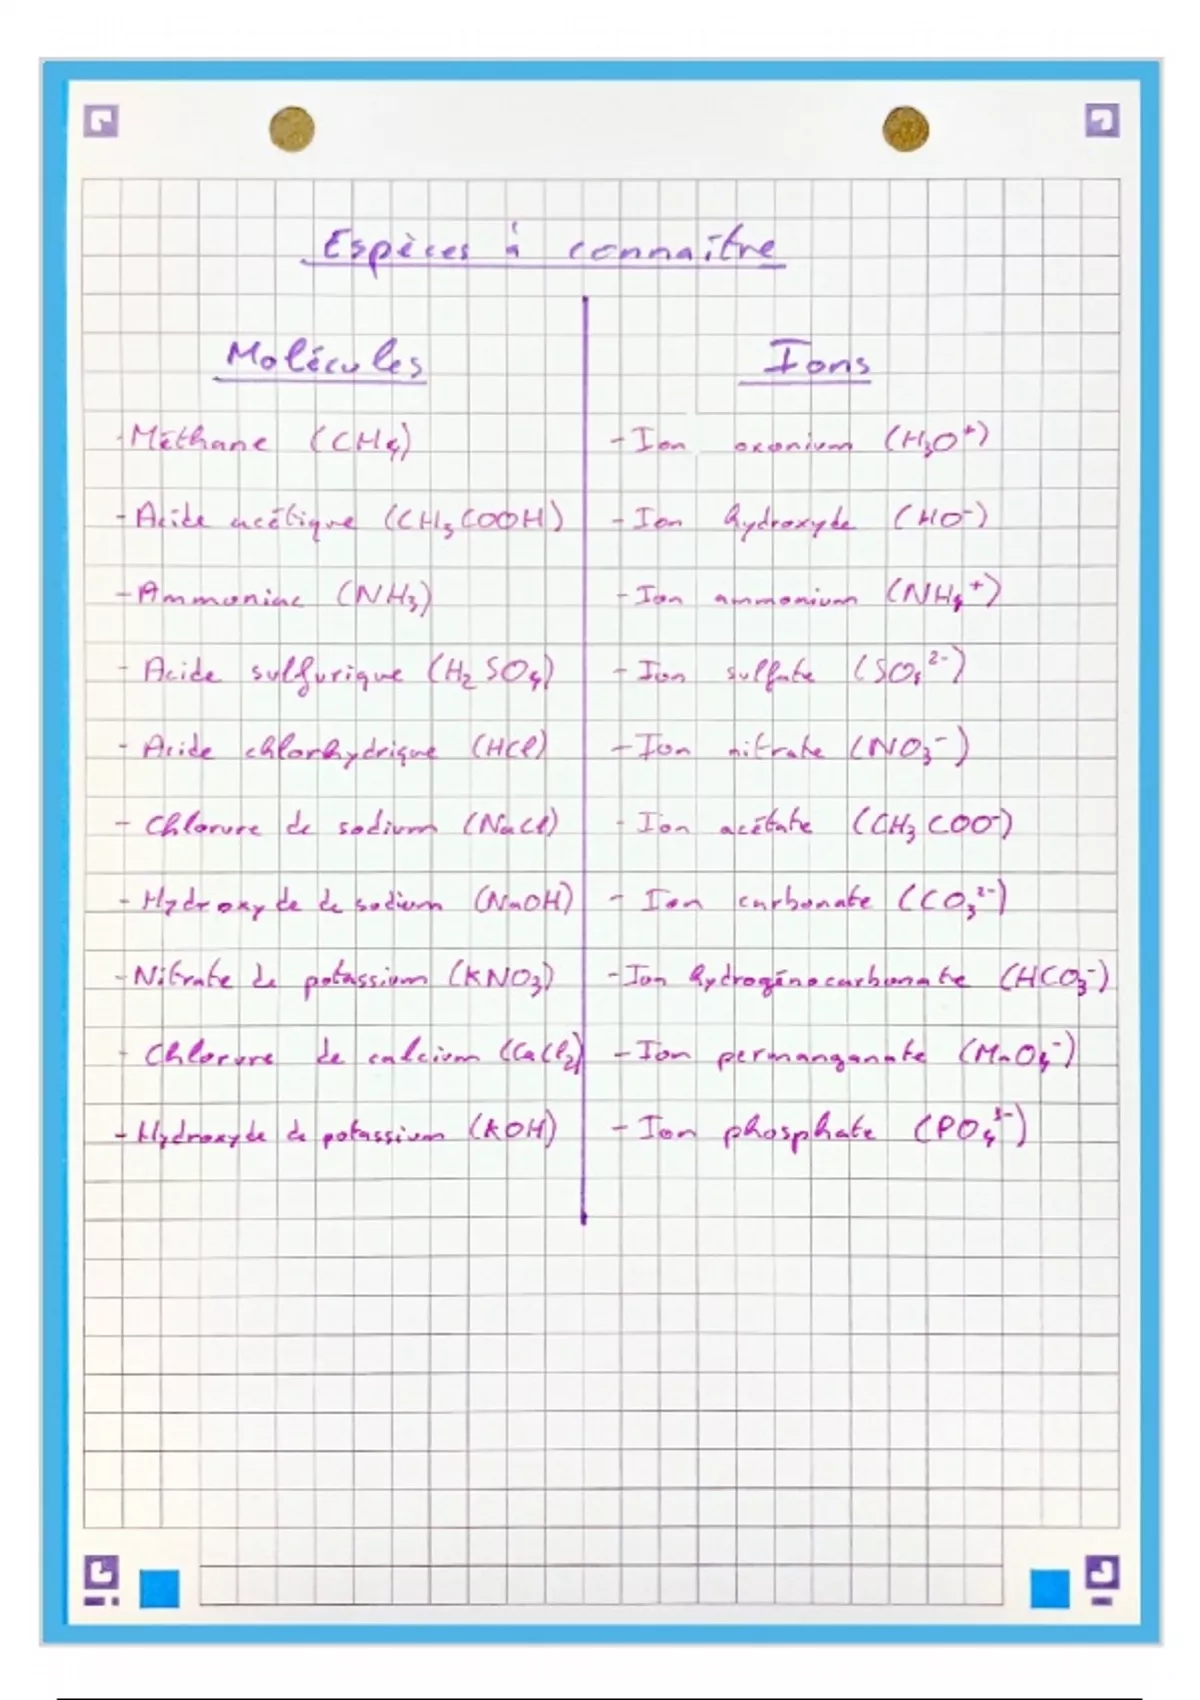 Espèces à connaître
Molécules
- Méthane (CH₄)
- Acide acétique (CH₃COOH)
- Ammoniac (NH₃)
- Acide sulfurique (H₂SO₄)
- Acide chlorhydrique (HCl)
- Chlorure de sodium (NaCl)
- Hydroxyde de sodium (NaOH)
- Nitrate de potassium (KNO₃)
- Chlorure de calcium (CaCl₂)
- Hydroxyde de potassium (KOH)
Ions
- Ion oxonium (H₃O⁺)
- Ion hydroxyde (HO⁻)
- Ion ammonium (NH₄⁺)
- Ion sulfate (SO₄²⁻)
- Ion nitrate (NO₃⁻)
- Ion acétate (CH₃COO⁻)
- Ion carbonate (CO₃²⁻)
- Ion hydrogénocarbonate (HCO₃⁻)
- Ion permanganate (MnO₄⁻)
- Ion phosphate (PO₄³⁻)